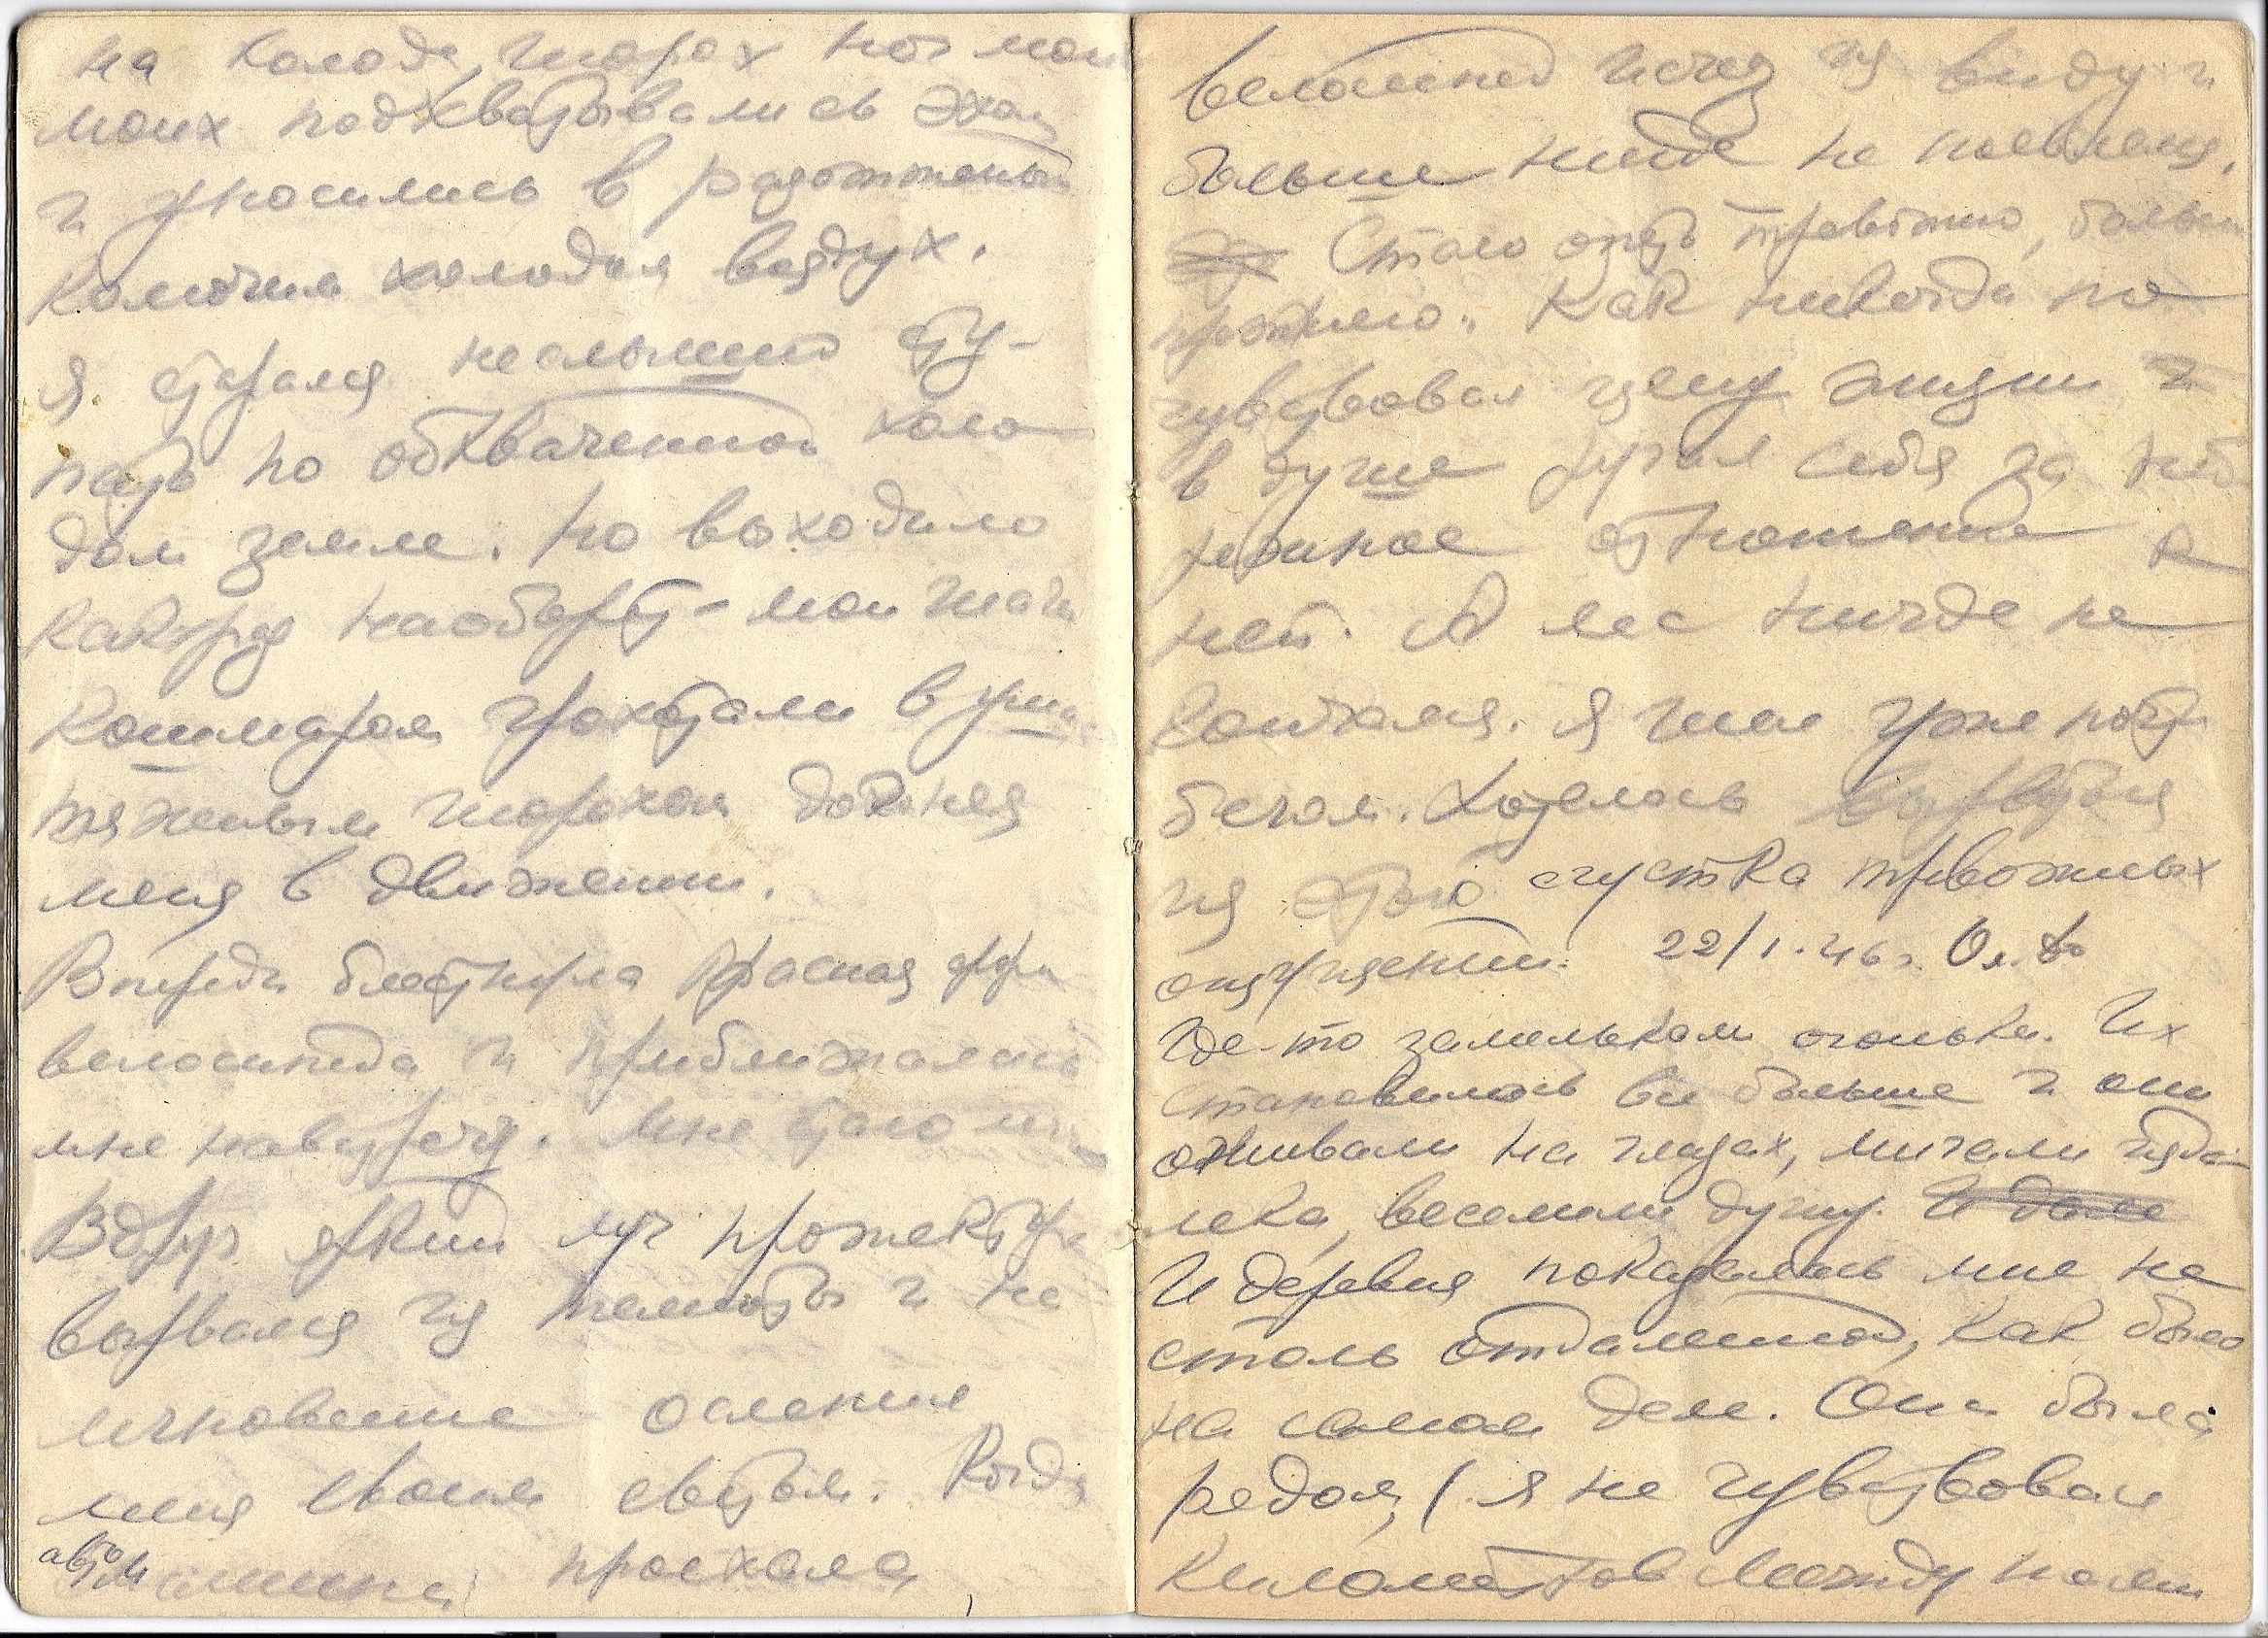 на холоде, шорох ног мои
моих подхватывались эхом
и уносились в
холодом воздух.
я старался неслышно сту-
пать по обхваченной холо
дом земле. Но выходило
как раз наоборот - мои шаги
кошмаром грохотали в уша
тяжелым шорохом догоняя
меня в движении.
Впереди блестнула красная фара
велосипеда и приближалась
мне навстречу. Мне стало
Вдруг яркий луч прожектора
вырвался из темноты и на
мгновение ослепил
меня своим светом. Когда
автомашина проехала,
велосипед исчез из виду и
больше нигде не появлялся.
Стало опять тревожно, больше
прежнего. Как никогда по
чувствовал цену жизни и
в душе ругал себя за неб
режное отношение к
ней. А лес нигде не
кончался. Я шел уже почти
бегом. Хотелось вырваться
из этого сгустка тревожных
ощущений. 22/I.46г.
Где-то замелькали огоньки. Их
становилось все больше и они
оживали на глазах, мигали изда
лека, веселили душу. И даже
И деревня показалась мне не
столь отдаленной, как было
на самом деле. Она была
рядом, / я не чувствовал
километров между нами